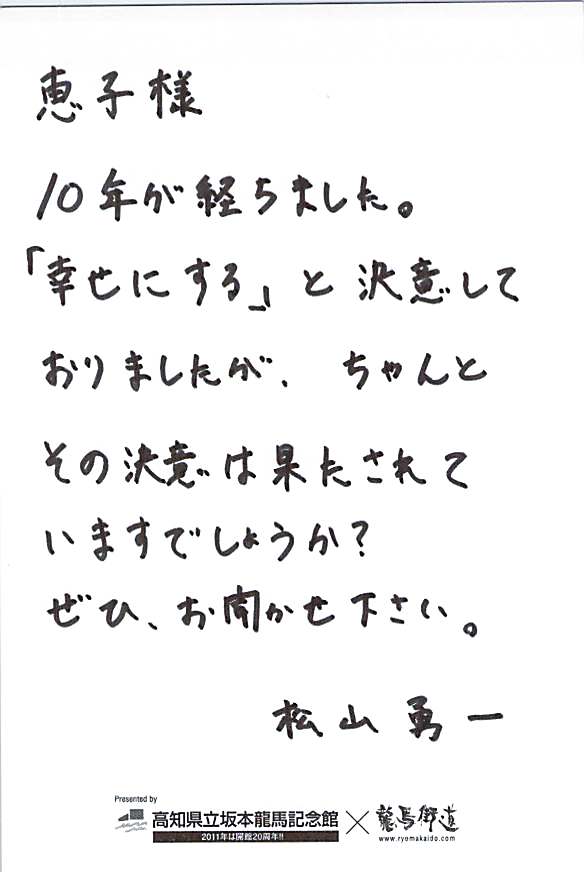 恵子様
10年が経ちました。
「幸せにする」と決意して
おりましたが、ちゃんと
その決意は果たされて
いますでしょうか？
ぜひ、お聞かせ下さい。
松山勇一
Presented by
高知県立坂本龍馬記念館×龍馬街道
2011年は開館20周年!!
www.ryomakaido.com